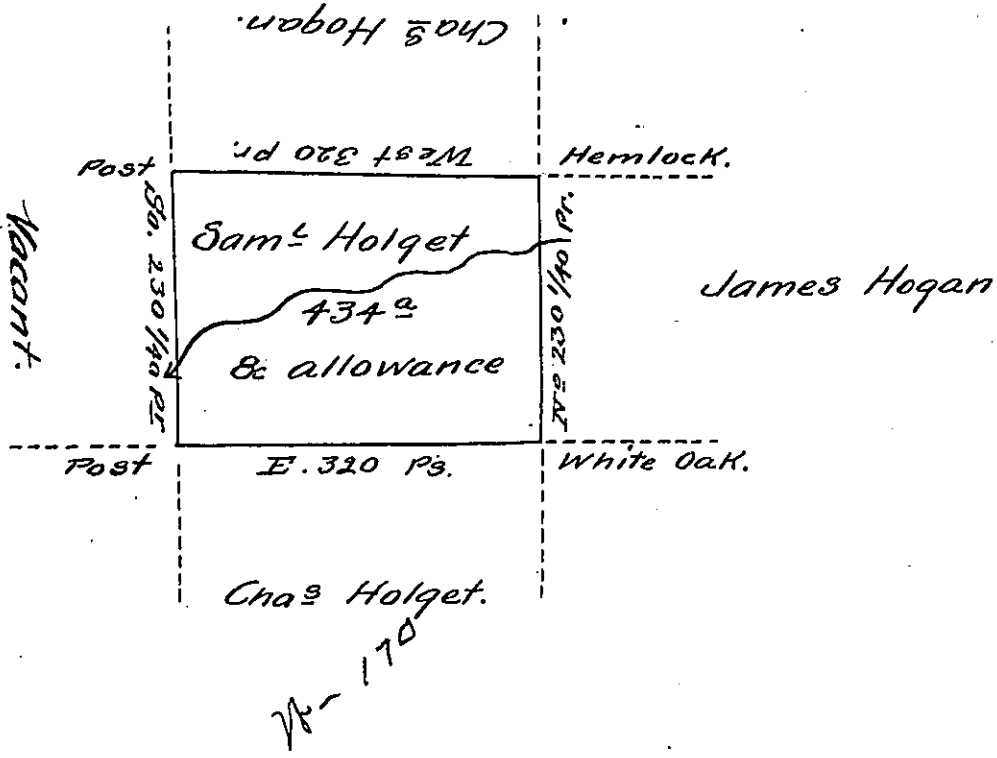 Chaˢ Hogan.
West 320 pr.
Post
Hemlock.
So. 230 1/40 pr
Samˡ Holget
434ᵃ
& allowance
Nº 230 1/40 Pr.
James Hogan
Vacant.
Post
E. 320 Pś.
White Oak.
Chaˢ Holget.
170